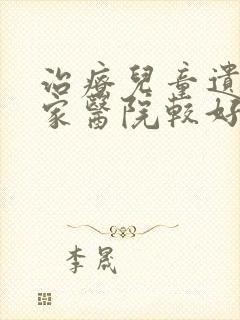 治療兒童遺
家醫院較好
李晟